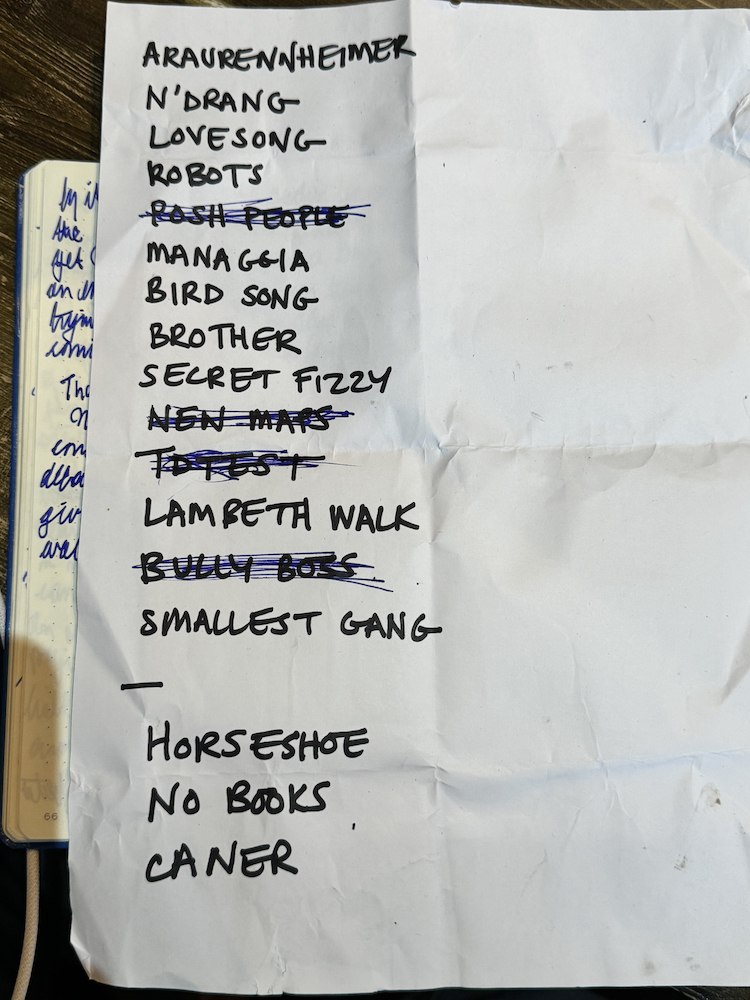 ARAURENNHEIMER
N'DRANG
LOVESONG
ROBOTS
POSH PEOPLE
MANAGGIA
BIRD SONG
BROTHER
SECRET FIZZY
NEN MAPS
TDTEST
LAMBETH WALK
BULLY BOSS
SMALLEST GANG
—
HORSESHOE
NO BOOKS
CANER
the
get
Tho
giv
66